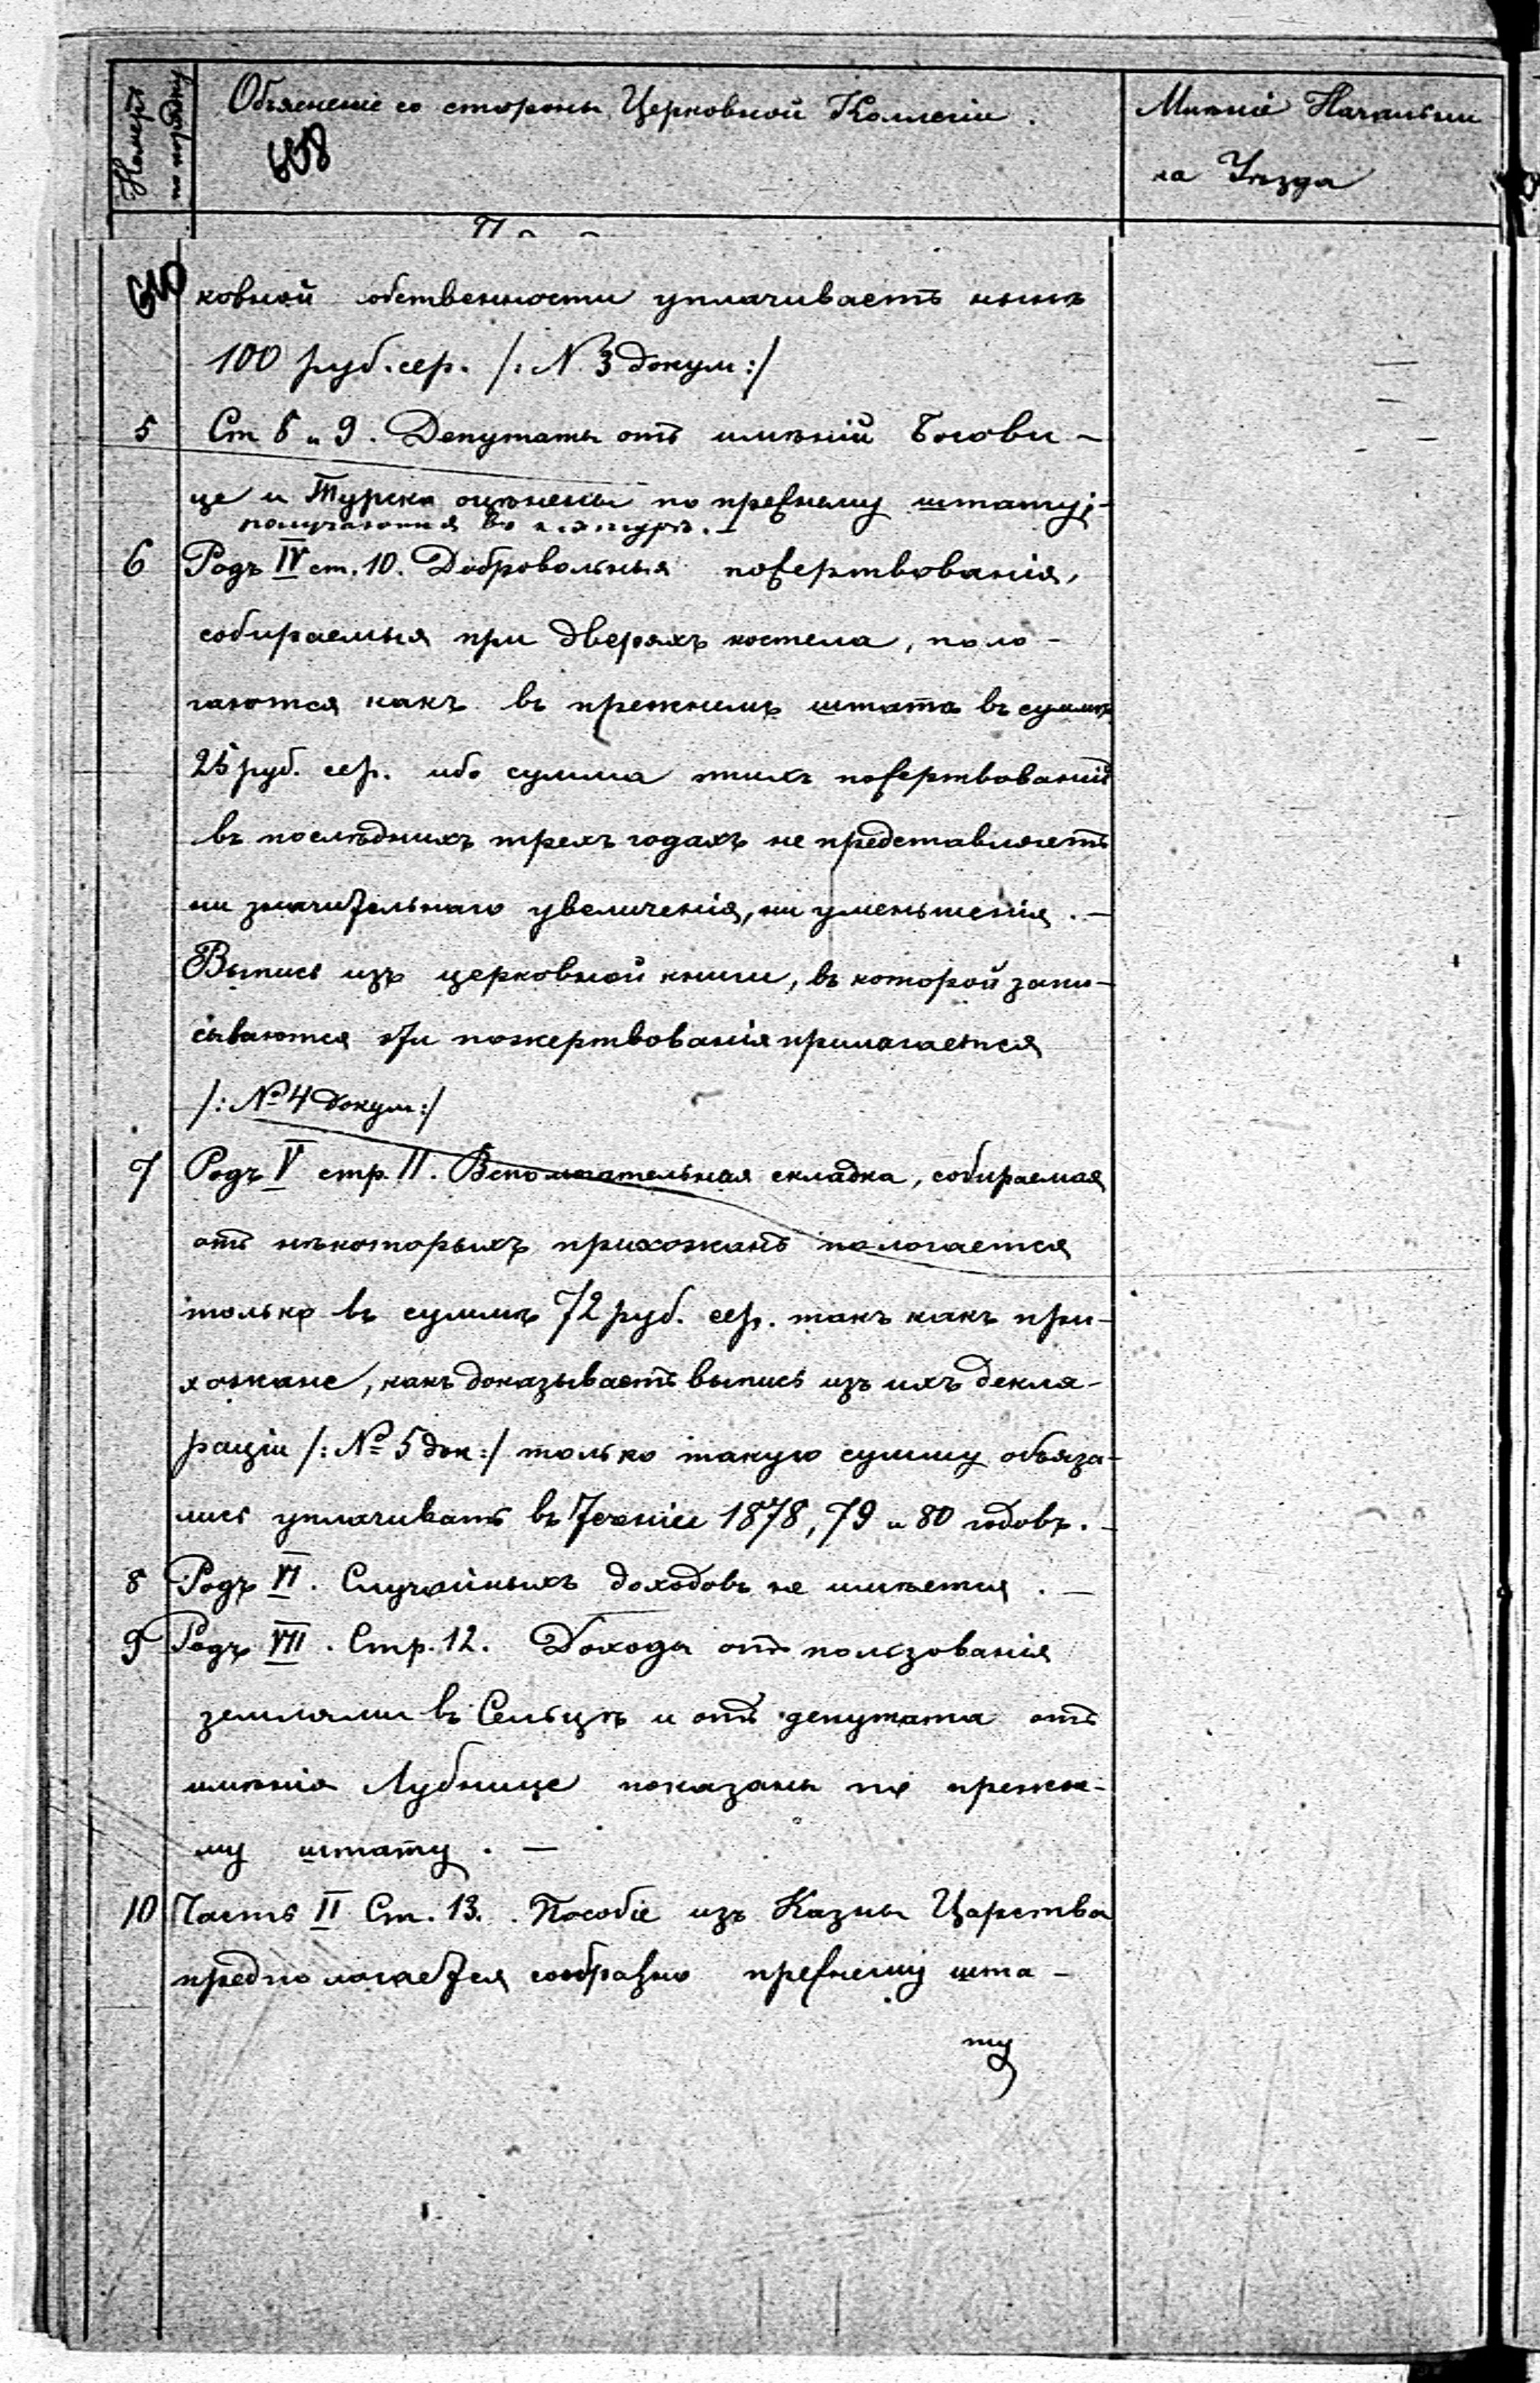 Номеръ по порядку
Объясненіе со стороны Церковной Коллегіи.
608
Мнѣніе Начальни-
ка Уѣзда
610
ковной собственности уплачиваетъ нынѣ
100 руб. сер. /: N. 3 докум :/
5 Ст 8 и 9. Депутаты отъ имѣній Богови-
це и Турска оцѣнены по прежнему штату;
получаются въ натурѣ. —
6 Родъ IV ст. 10. Добровольныя пожертвованія,
собираемыя при дверяхъ костела, пола-
гаются какъ въ прежнемъ штатѣ въ суммѣ
25 руб. сер. ибо сумма этихъ пожертвованій
въ послѣднихъ трехъ годахъ не представляетъ
ни значительнаго увеличенія, ни уменьшенія. —
Выпись изъ церковной книги, въ которой запи-
сываются эти пожертвованія прилагается
/: № 4 докум :/
7 Родъ V стр. 11. Вспомагательная складка, собираемая
отъ нѣкоторыхъ прихожанъ полагается
только въ суммѣ 72 руб. сер. такъ какъ при-
хожане, какъ доказываетъ выпись изъ ихъ декла-
раціи /: № 5 док :/ только такую сумму обяза-
лись уплачивать въ теченіи 1878, 79 и 80 годовъ. —
8 Родъ VI. Случайныхъ доходовъ не имѣется. —
9 Родъ VII. Стр. 12. Доходы отъ пользованія
землями въ Сельцѣ и отъ депутата отъ
имѣнія Лубнице показаны по прежне-
му штату. —
10 Часть II Ст. 13. Пособіе изъ Казны Царства
предполагается сообразно прежнему шта-
ту